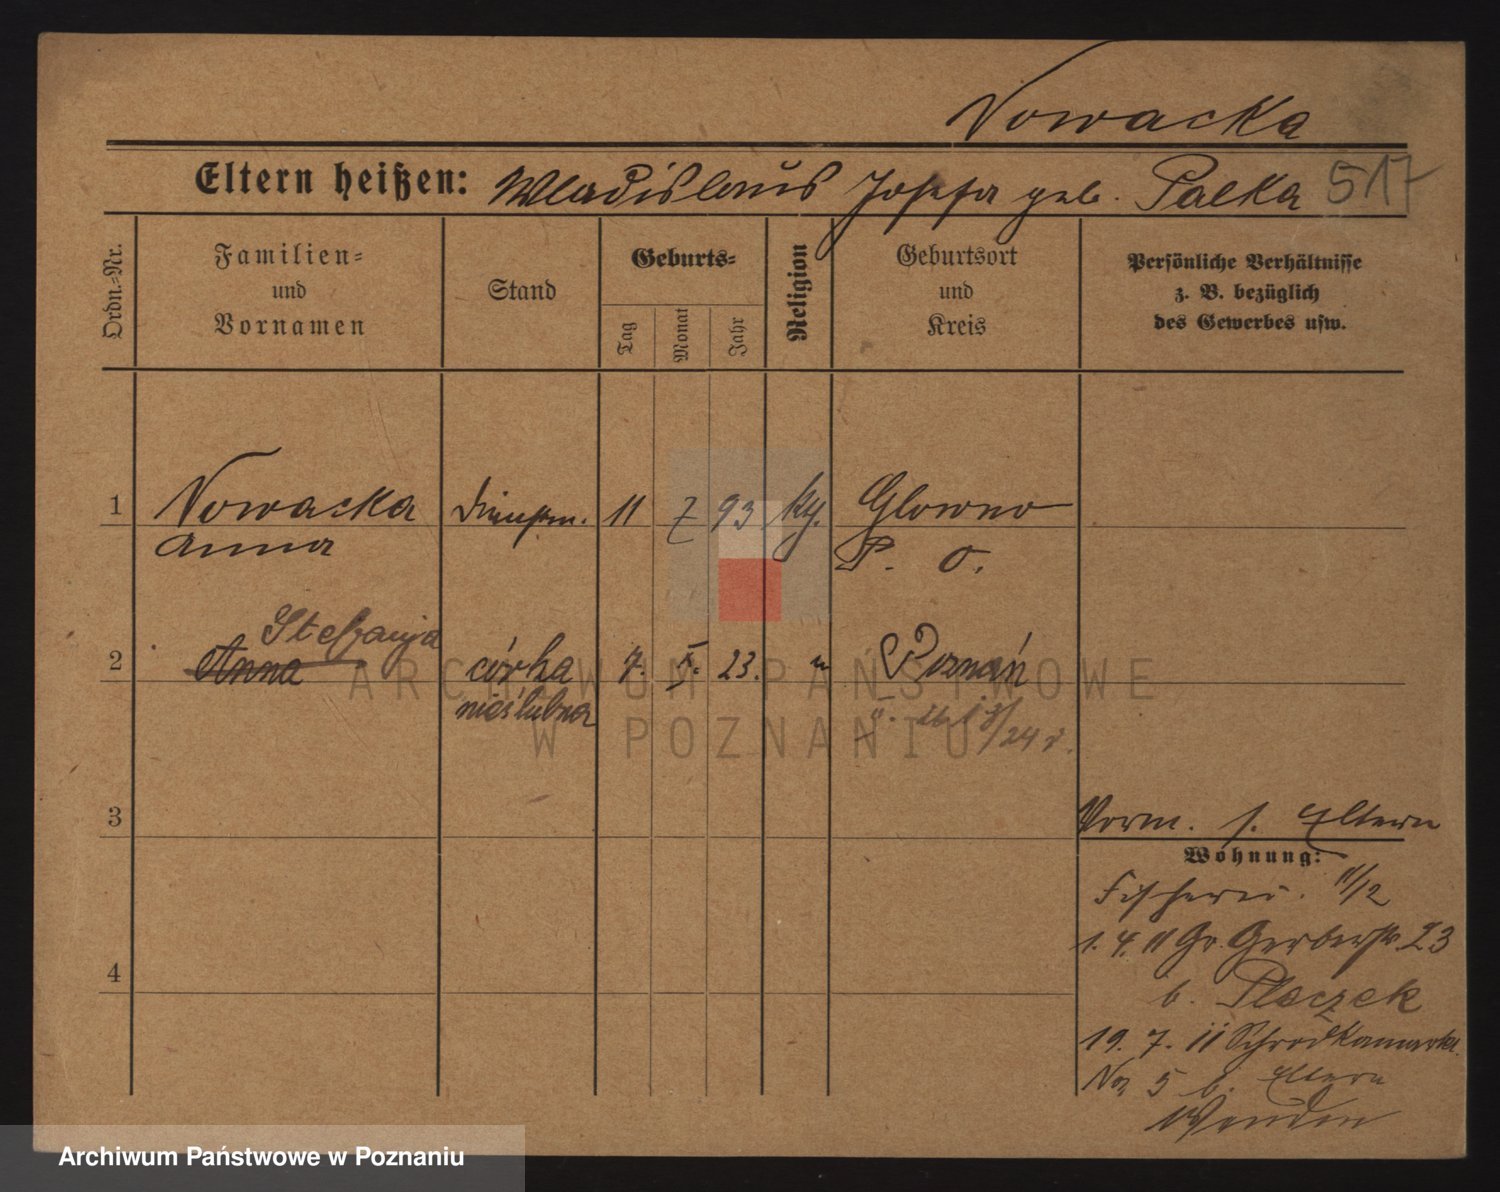 Nowacka
Eltern heißen: Wladislaus Josefa geb. Palka 517
Ordn.-Nr.
Familien- und Vornamen
Stand
Geburts-
Tag
Monat
Jahr
Religion
Geburtsort und Kreis
Persönliche Verhältnisse
z. B. bezüglich
des Gewerbes usw.
1 Nowacka Dienstm. 11 7 93 kg. Glowno
Anna P. O.
Stefanja
2 Anna córka 7. X. 23. " Poznań
nieślubna
24 r.
3
Vorm. s. Eltern
Wohnung:
Fischerei. 11/12
1. 4. 11 Gr. Gerberstr. 23
4
b. Placzek
19. 7. 11 Schrodkamarkt
No 5 b. Eltern
ARCHIWUM PAŃSTWOWE
W POZNANIU
Archiwum Państwowe w Poznaniu